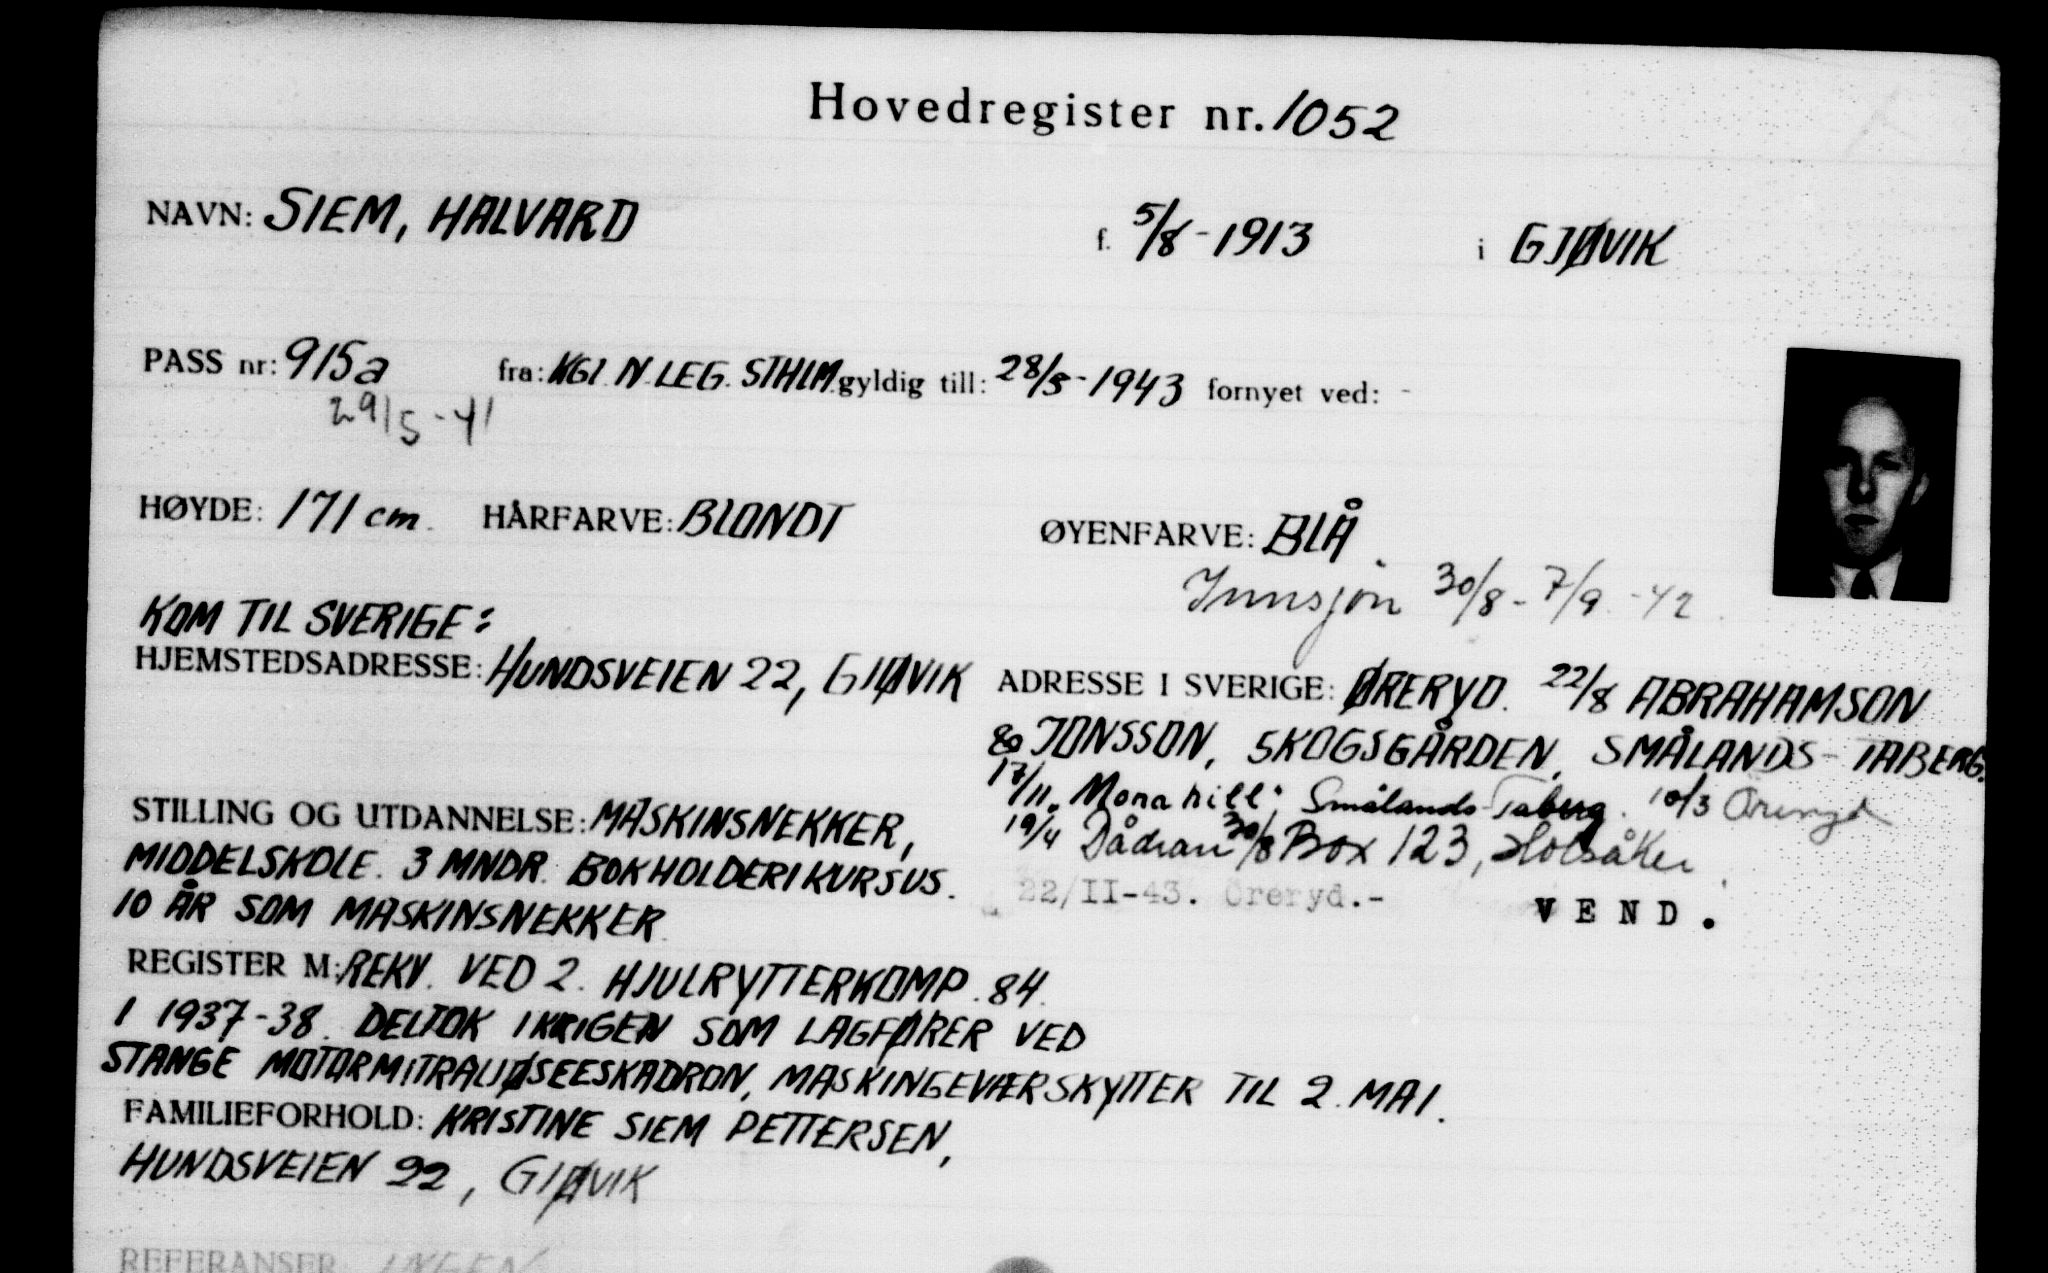 Hovedregister nr. 1052
NAVN: SIEM, HALVARD f. 5/8-1913 i GJØVIK
PASS nr: 915a fra: KGL. N. LEG. STHLM. gyldig till: 28/5-1943 fornyet ved: -
29/5-41
HØYDE: 171 cm. HÅRFARVE: BLONDT ØYENFARVE: BLÅ
Innsjön 30/8-7/9-42.
KOM TIL SVERIGE:
HJEMSTEDSADRESSE: HUNDSVEIEN 22, GJØVIK
ADRESSE I SVERIGE: ØRERYD. 22/8 ABRAHAMSON
& JONSSON, SKOGSGÅRDEN, SMÅLANDS-TABERG.
17/11. Mona hill; Smålands-Taberg. 10/3 Öreryd
19/4 Dådran 30/8 Box 123, Holsåker.
22/II-43. Öreryd.-
VEND.
STILLING OG UTDANNELSE: MASKINSNEKKER,
MIDDELSKOLE. 3 MNDR. BOKHOLDERIKURSUS.
10 ÅR SOM MASKINSNEKKER.
REGISTER M: REKV. VED 2. HJULRYTTERKOMP. 84.
I 1937-38. DELTOK I KRIGEN SOM LAGFØRER VED
STANGE MOTORMITRALJØSEESKADRON, MASKINGEVÆRSKYTTER TIL 2. MAI.
FAMILIEFORHOLD: KRISTINE SIEM PETTERSEN,
HUNDSVEIEN 22, GJØVIK
REFERANSER: INGEN